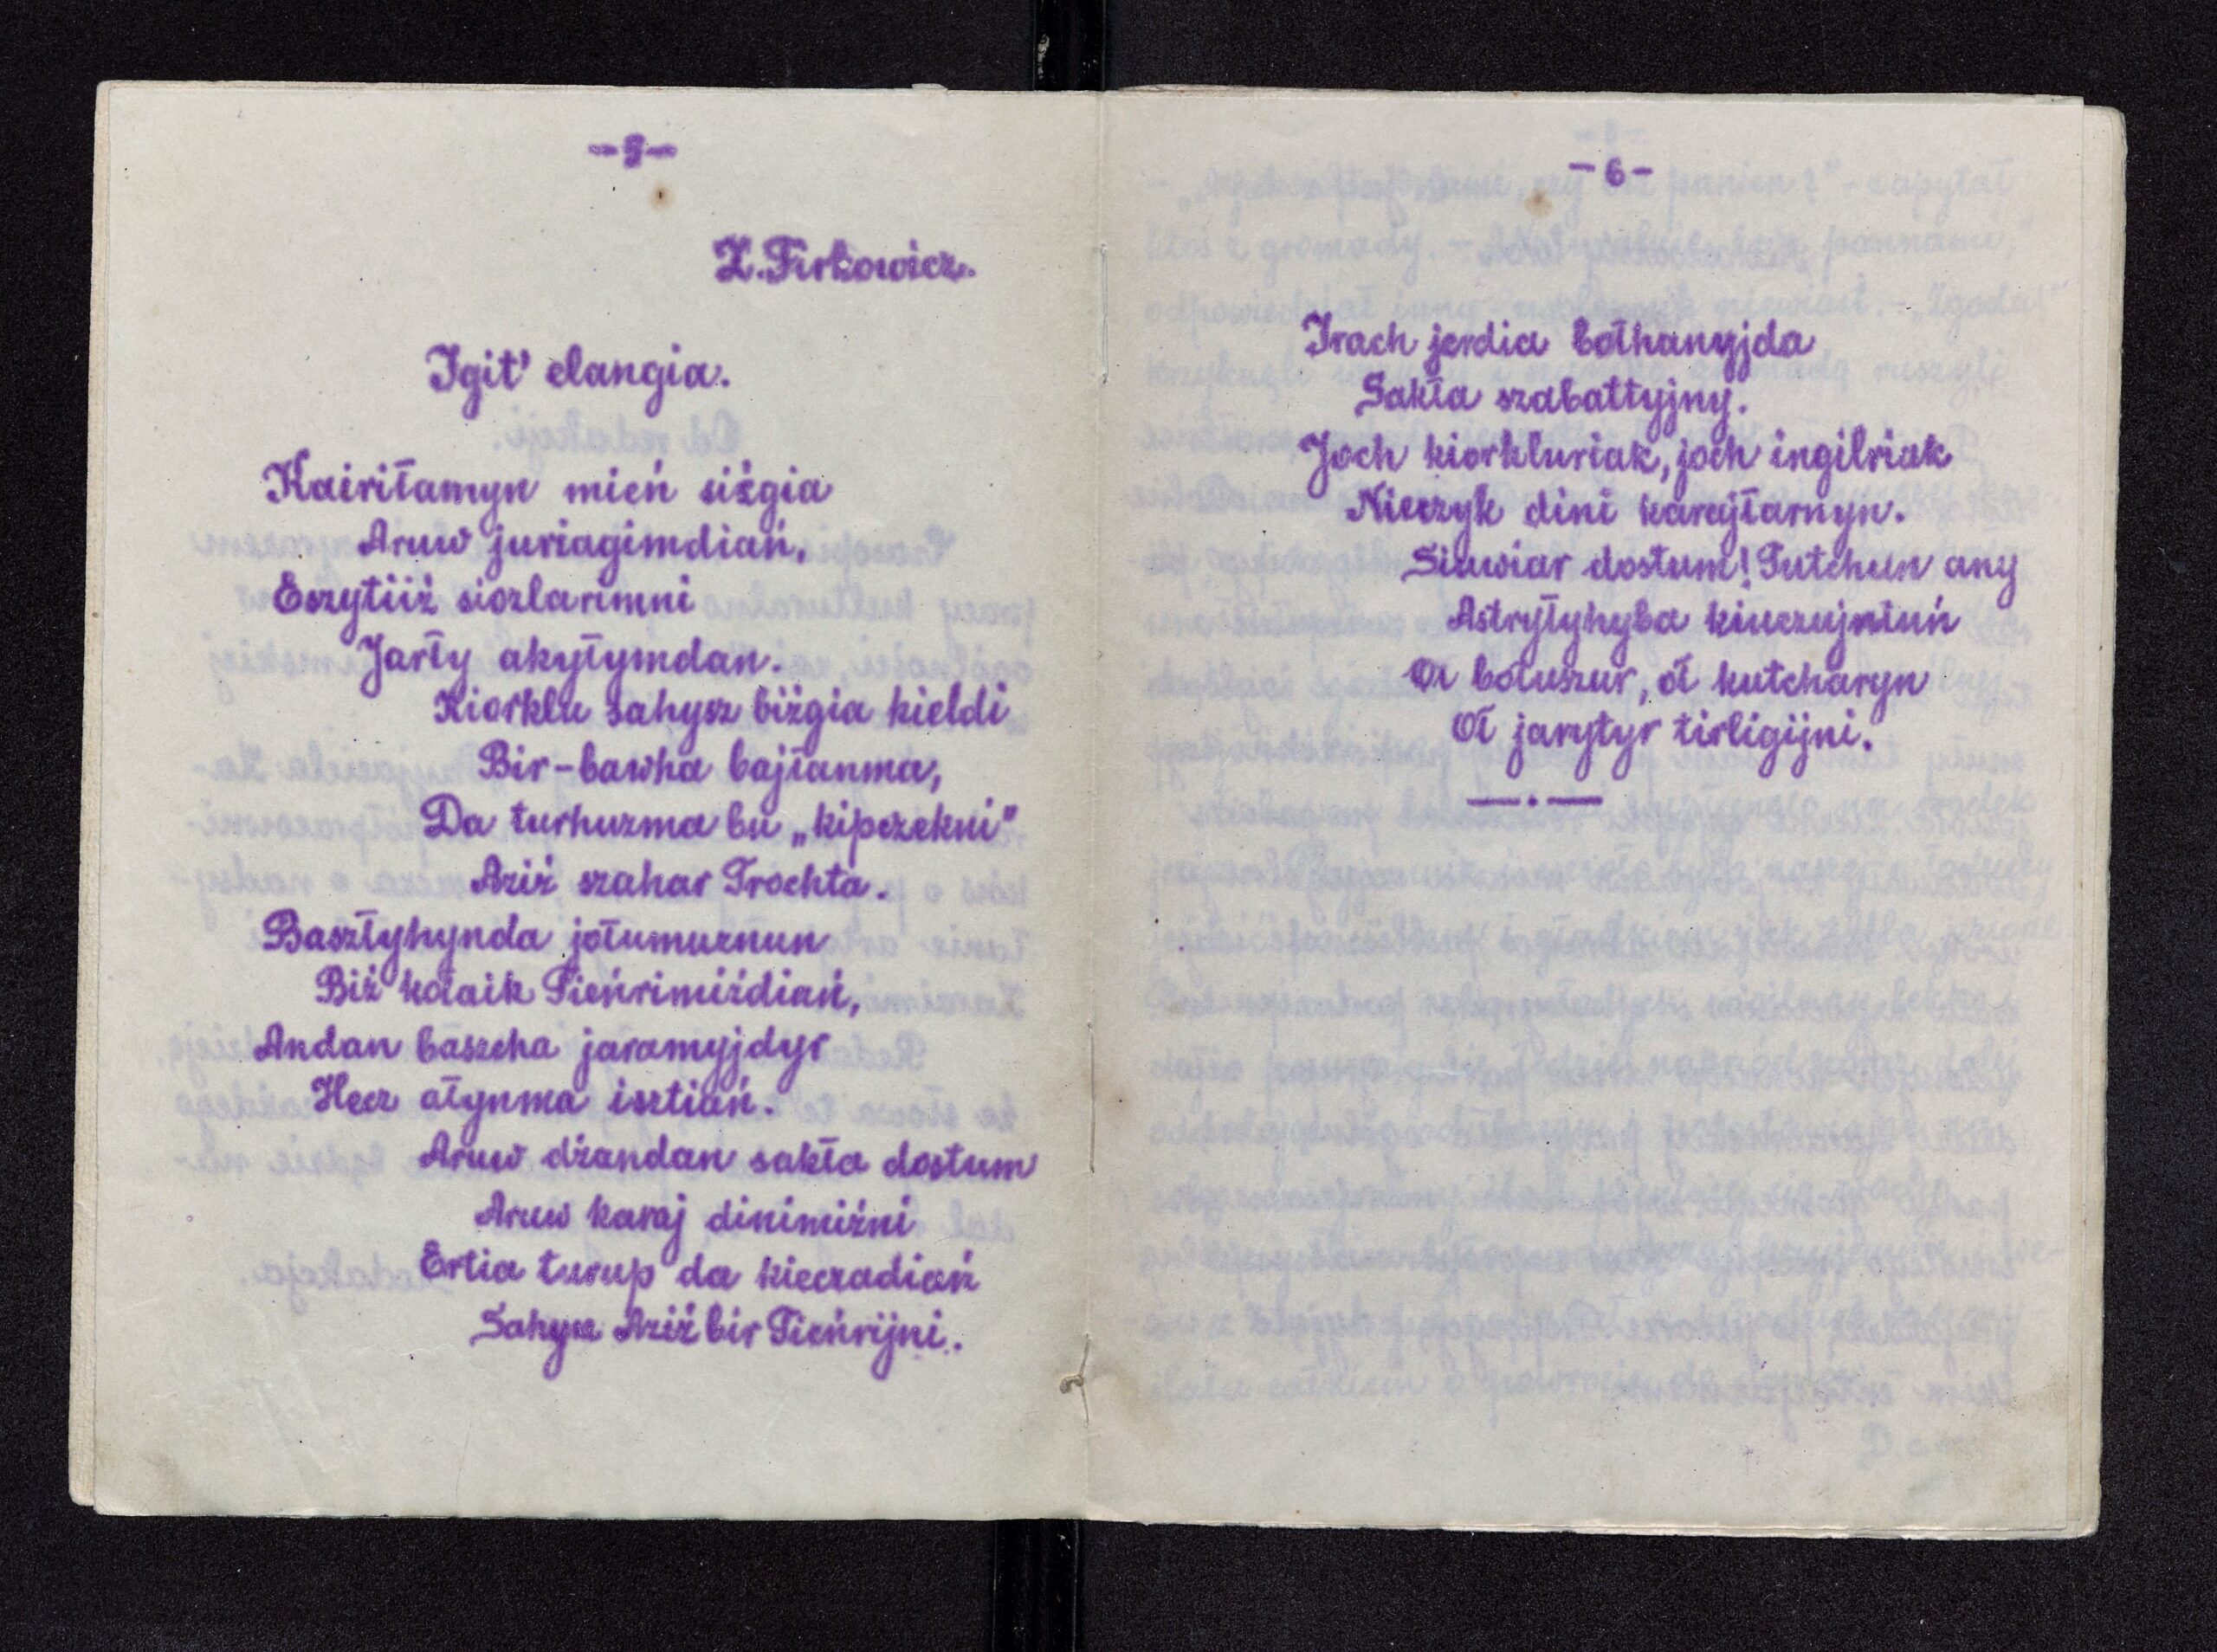 -5-
Z. Firkowicz.
Igit' elangia.
Kairiłamyn mień siźgia
Aruw juriagimdiań,
Eszytiiź siozlarimni
Jarły akyłymdan.
Kiorklu sahysz biźgia kieldi
Bir-bawha bajłanma,
Da turhuzma bu „kipczekni"
Aziź szahar Trochta.
Basztyhynda jołumuznun
Biź kołaik Tieńrimiźdiań,
Andan baszcha jaramyjdyr
Hecz ałynma isztiań.
Aruw dżandan sakła dostum
Aruw karaj dinimiźni
Ertia turup da kieczadiań
Sahyn Aziź bir Tieńrijni.
-6-
Irach jerdia bołhanyjda
Sakła szabattyjny.
Joch kiorkluriak, joch ingilriak
Nieczyk dini karajłarnyn.
Siuwiar dostum! Tutchun any
Astryłyhyba kiuczujniuń
Oł bołuszur, oł kutcharyn
Oł jarytyr tirligijni.